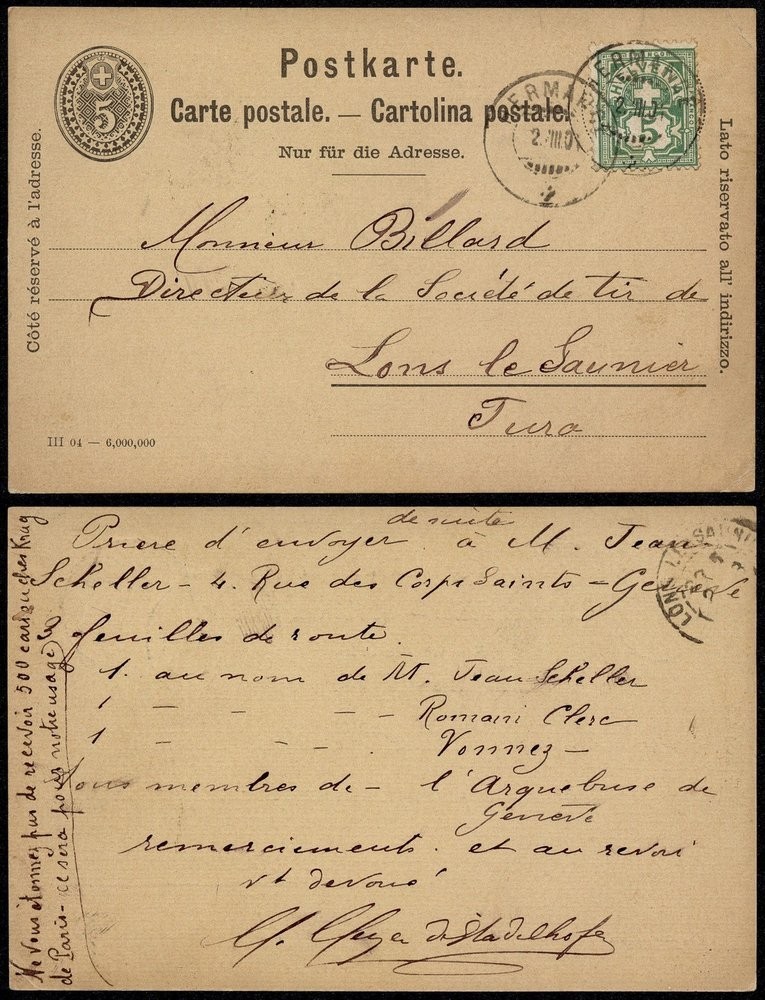 Postkarte.
Carte postale. — Cartolina postale.
Nur für die Adresse.
5
HELVETIA
5
2. III. 0
Côté réservé à l'adresse.
Lato riservato all' indirizzo.
Monsieur Billard
Directeur de la Société de tir de
Lons le Saunier
Jura
III 04 — 6,000,000
de suite
Priere d'envoyer à M. Jean
Scheller - 4. Rue des Corps Saints = Genève
feuilles de route.
1. au nom de M. Jean Scheller
1 - - - - Romain Clerc
1 - - - . Vonnez -
Tous membres de - l'Arquebuse de
Genève
remerciements. et au revoir
vt devoué
Meyer de Stadelhofen
Ne vous étonnez pas de recevoir 500 cartouches Krag
de Paris - ce sera pour notre usage
LONS LE SAUNI